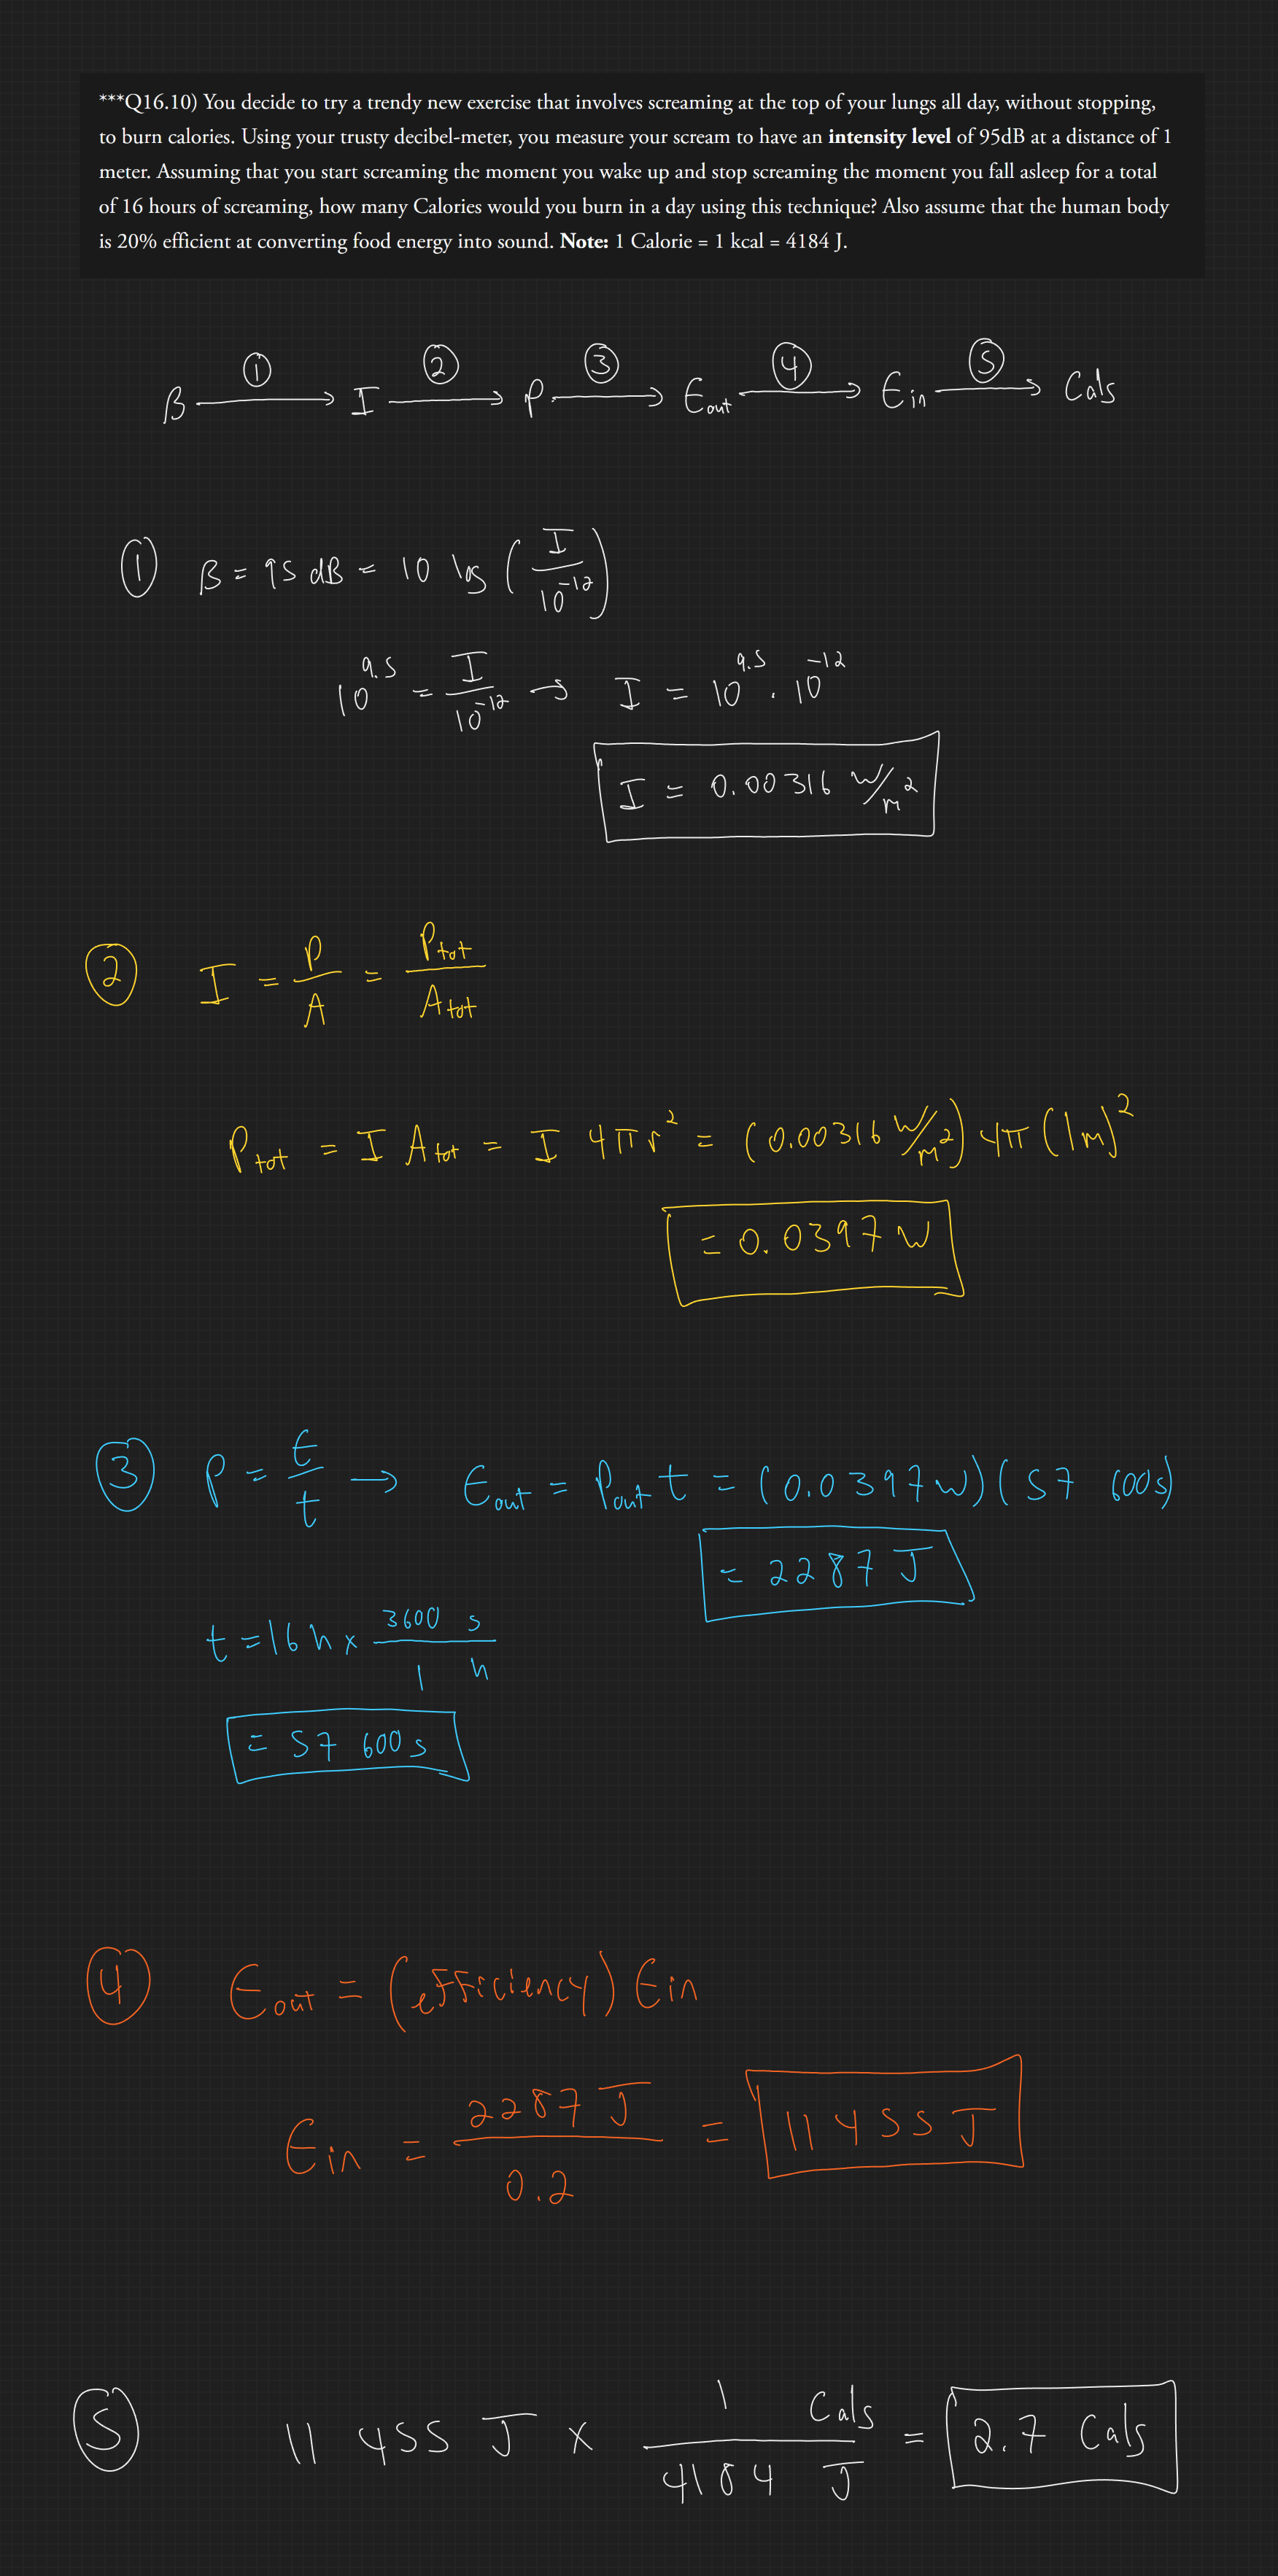 ***Q16.10) You decide to try a trendy new exercise that involves screaming at the top of your lungs all day, without stopping,
to burn calories. Using your trusty decibel-meter, you measure your scream to have an intensity level of 95dB at a distance of 1
meter. Assuming that you start screaming the moment you wake up and stop screaming the moment you fall asleep for a total
of 16 hours of screaming, how many Calories would you burn in a day using this technique? Also assume that the human body
is 20% efficient at converting food energy into sound. Note: 1 Calorie = 1 kcal = 4184 J.
β —①→ I —②→ P —③→ E_out —④→ E_in —⑤→ Cals
① β = 95 dB = 10 log (I / 10^-12)
10^9.5 = I / 10^-12 → I = 10^9.5 · 10^-12
I = 0.00316 W/m²
② I = P / A = P_tot / A_tot
P_tot = I A_tot = I 4πr² = (0.00316 W/m²) 4π (1m)²
= 0.0397 W
③ P = E / t → E_out = P_out t = (0.0397 W)(57 600s)
= 2287 J
t = 16 h x 3600 s / 1 h
= 57 600 s
④ E_out = (efficiency) E_in
E_in = 2287 J / 0.2 = 11 455 J
⑤ 11 455 J x 1 Cals / 4184 J = 2.7 Cals